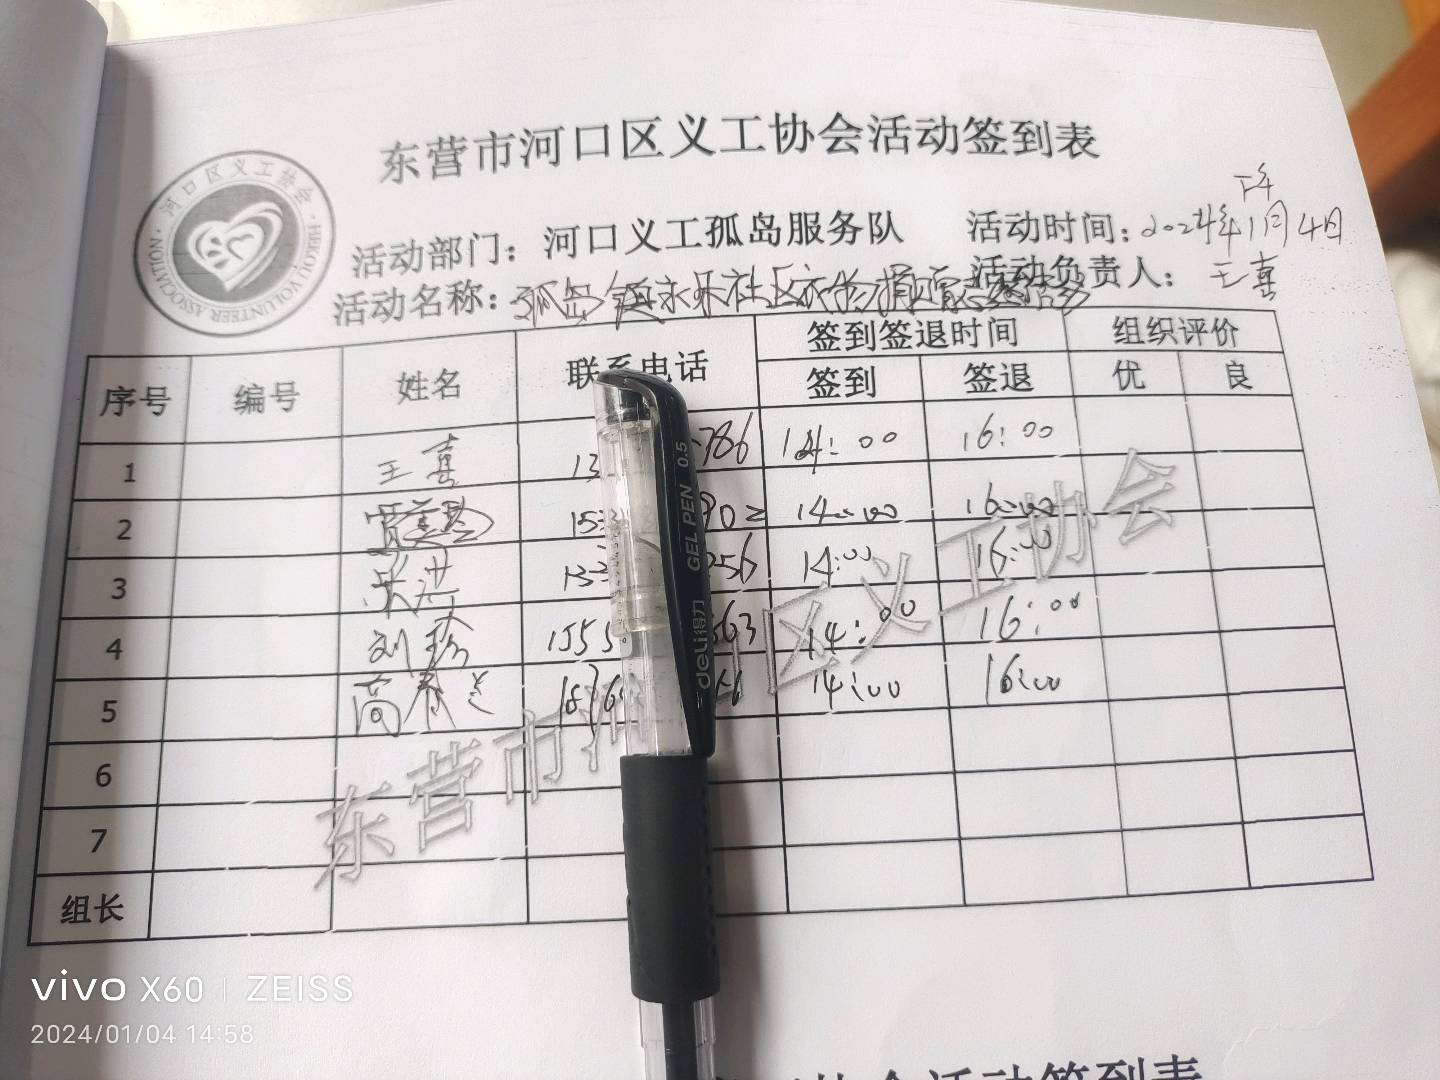 东营市河口区义工协会活动签到表
河口区义工协会
HEKOU VOLUNTEER ASSOCIATION
下午
活动部门：河口义工孤岛服务队 活动时间：2024年1月4日
活动名称：孤岛镇永乐社区衣物捐 活动负责人：王喜
序号 编号 姓名 联系电话 签到签退时间 组织评价
签到 签退 优 良
1 王喜 13 786 14：00 16：00
2 153 902 14:00 16:00
3 133 256 14:00 16:00
4 刘珍 1555 563 14:00 16:00
5 高春兰 1876 14:00 16:00
6
7
组长
东营市河口区义工协会
deli得力 GEL PEN 0.5
vivo X60 | ZEISS
2024/01/04 14:58
协会活动签到表